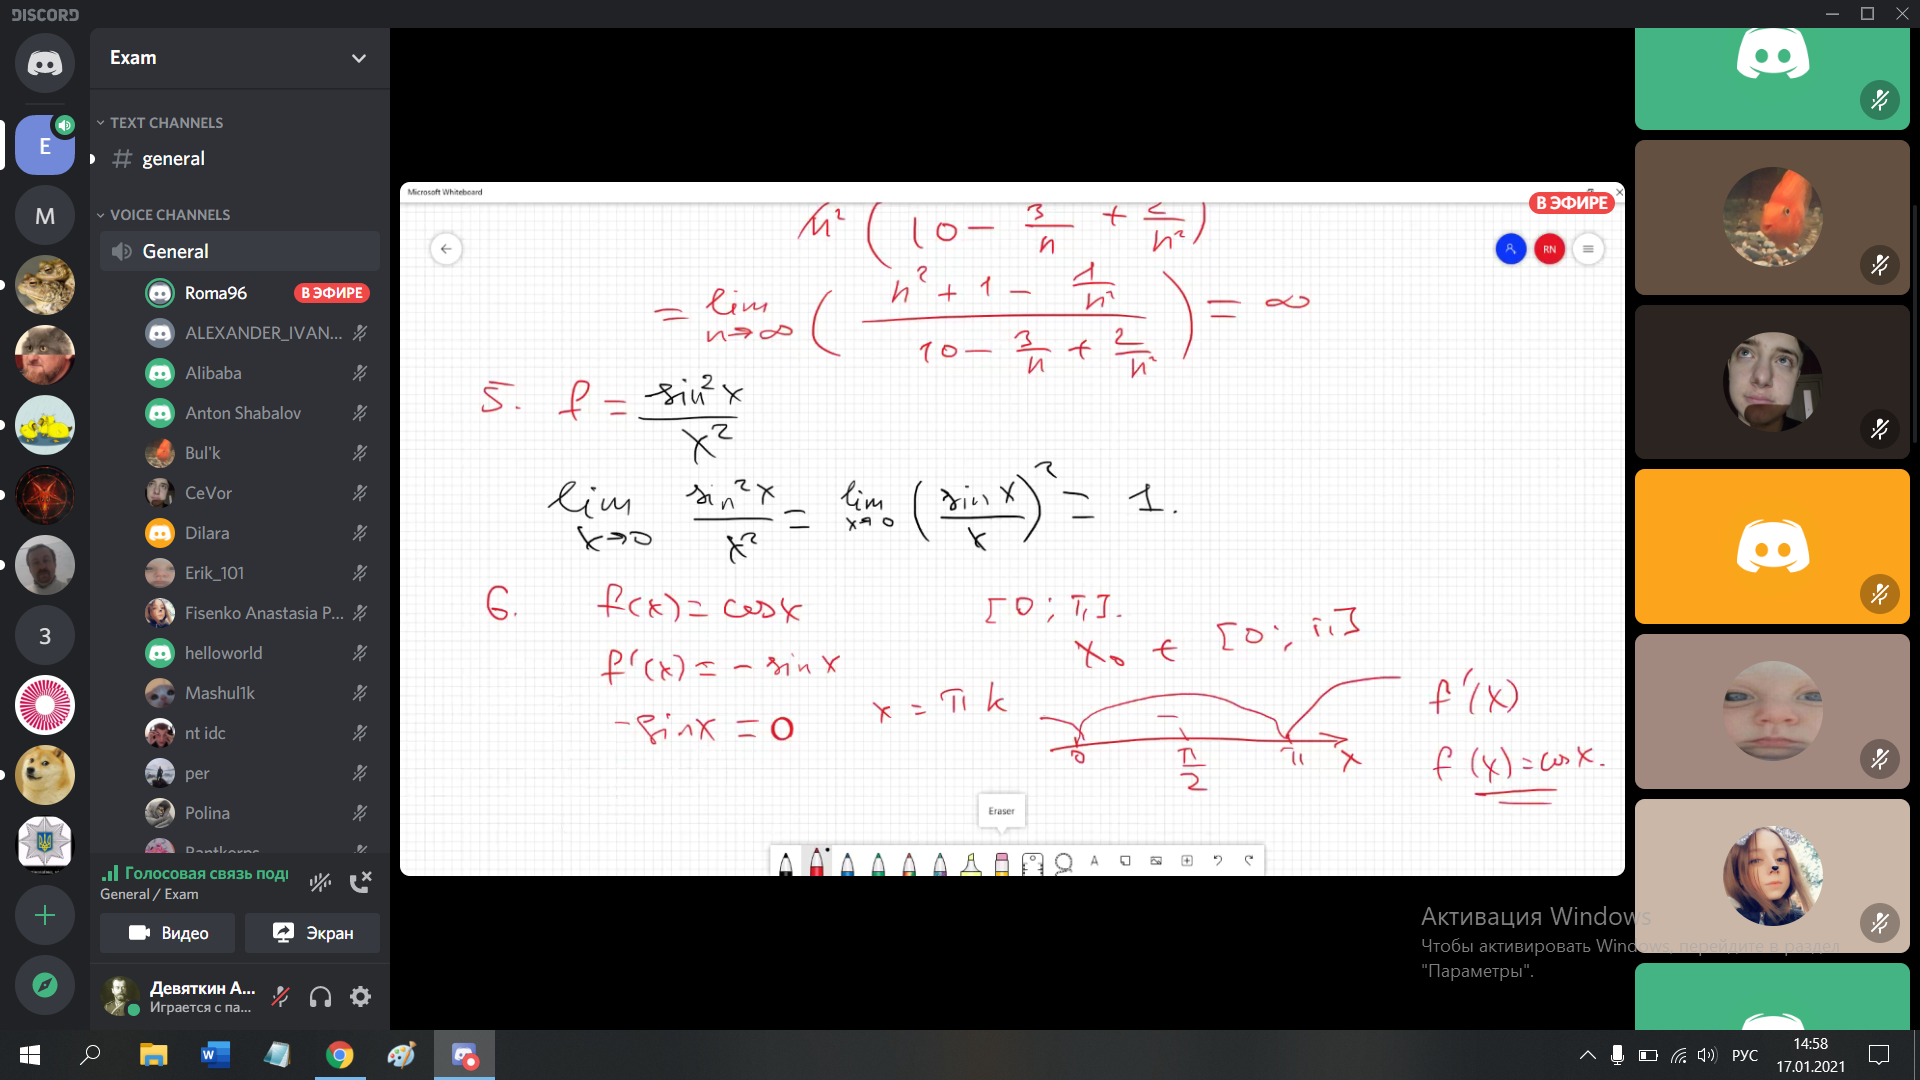 DISCORD
Exam
TEXT CHANNELS
# general
VOICE CHANNELS
General
Roma96 В ЭФИРЕ
ALEXANDER_IVAN...
Alibaba
Anton Shabalov
Bul'k
CeVor
Dilara
Erik_101
Fisenko Anastasia P...
helloworld
Mashul1k
nt idc
per
Polina
E
M
3
Голосовая связь подк
General / Exam
Видео
Экран
Девяткин А...
Играется с па...
Microsoft Whiteboard
В ЭФИРЕ
RN
n² ( 10 - 3/n + 2/n² )
= lim n→∞ ( (n² + 1 - 1/n²) / (10 - 3/n + 2/n²) ) = ∞
5. f = sin² x / x²
lim x→0 sin² x / x² = lim x→0 ( sin x / x )² = 1.
6. f(x) = cos x [0 ; π].
x₀ ∈ [0 ; π]
f'(x) = - sin x
- sin x = 0 x = π k
- f'(x)
0 π/2 π x f(x) = cos x.
Eraser
A
Активация Windows
Чтобы активировать Windows, перейдите в раздел
"Параметры".
РУС
14:58
17.01.2021